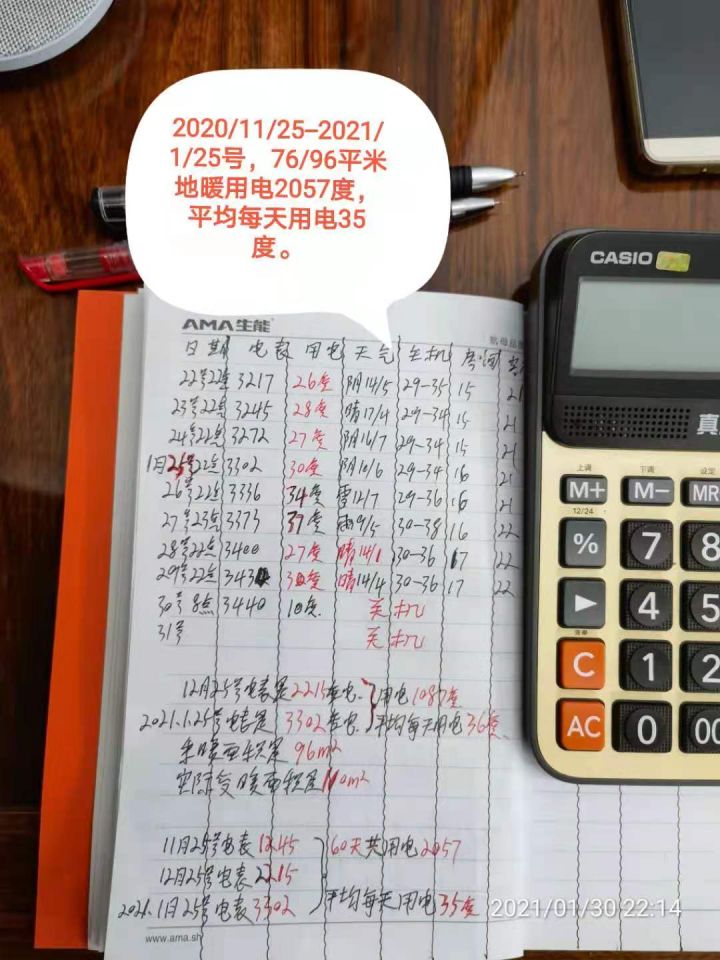 2020/11/25–2021/
1/25号，76/96平米
地暖用电2057度，
平均每天用电35
度。
AMA生能
日期 电表 用电 天气 主机 房间
22号22点 3217 26度 阴14/5 29-35 15 21
23号22点 3245 28度 晴17/4 29-34 15 21
24号22点 3272 27度 阴16/7 29-34 15 21
1月25号22点 3302 30度 阴10/6 29-34 16 21
26号22点 3336 34度 雪12/7 29-36 16 21
27号23点 3373 37度 雨9/5 30-38 16 22
28号22点 3400 27度 晴14/1 30-36 17 22
29号22点 343 度 晴14/4 30-36 17 22
30号8点 3440 10度 关机
31号 关机
12月25号电表是2215度电 用电1087度
2021.1.25号电表是3302度电 平均每天用电36度
采暖面积是96m²
实际受暖面积是110m²
11月25号电表1245 60天共用电2057
12月25号电表2215
2021.1月25号电表3302 平均每天用电35度
www.ama.sh
CASIO
真
上调 下调 设定
M+ M− MR
12/24
% 7 8
▶ 4 5
C 1 2
AC 0 00
2021/01/30 22:14